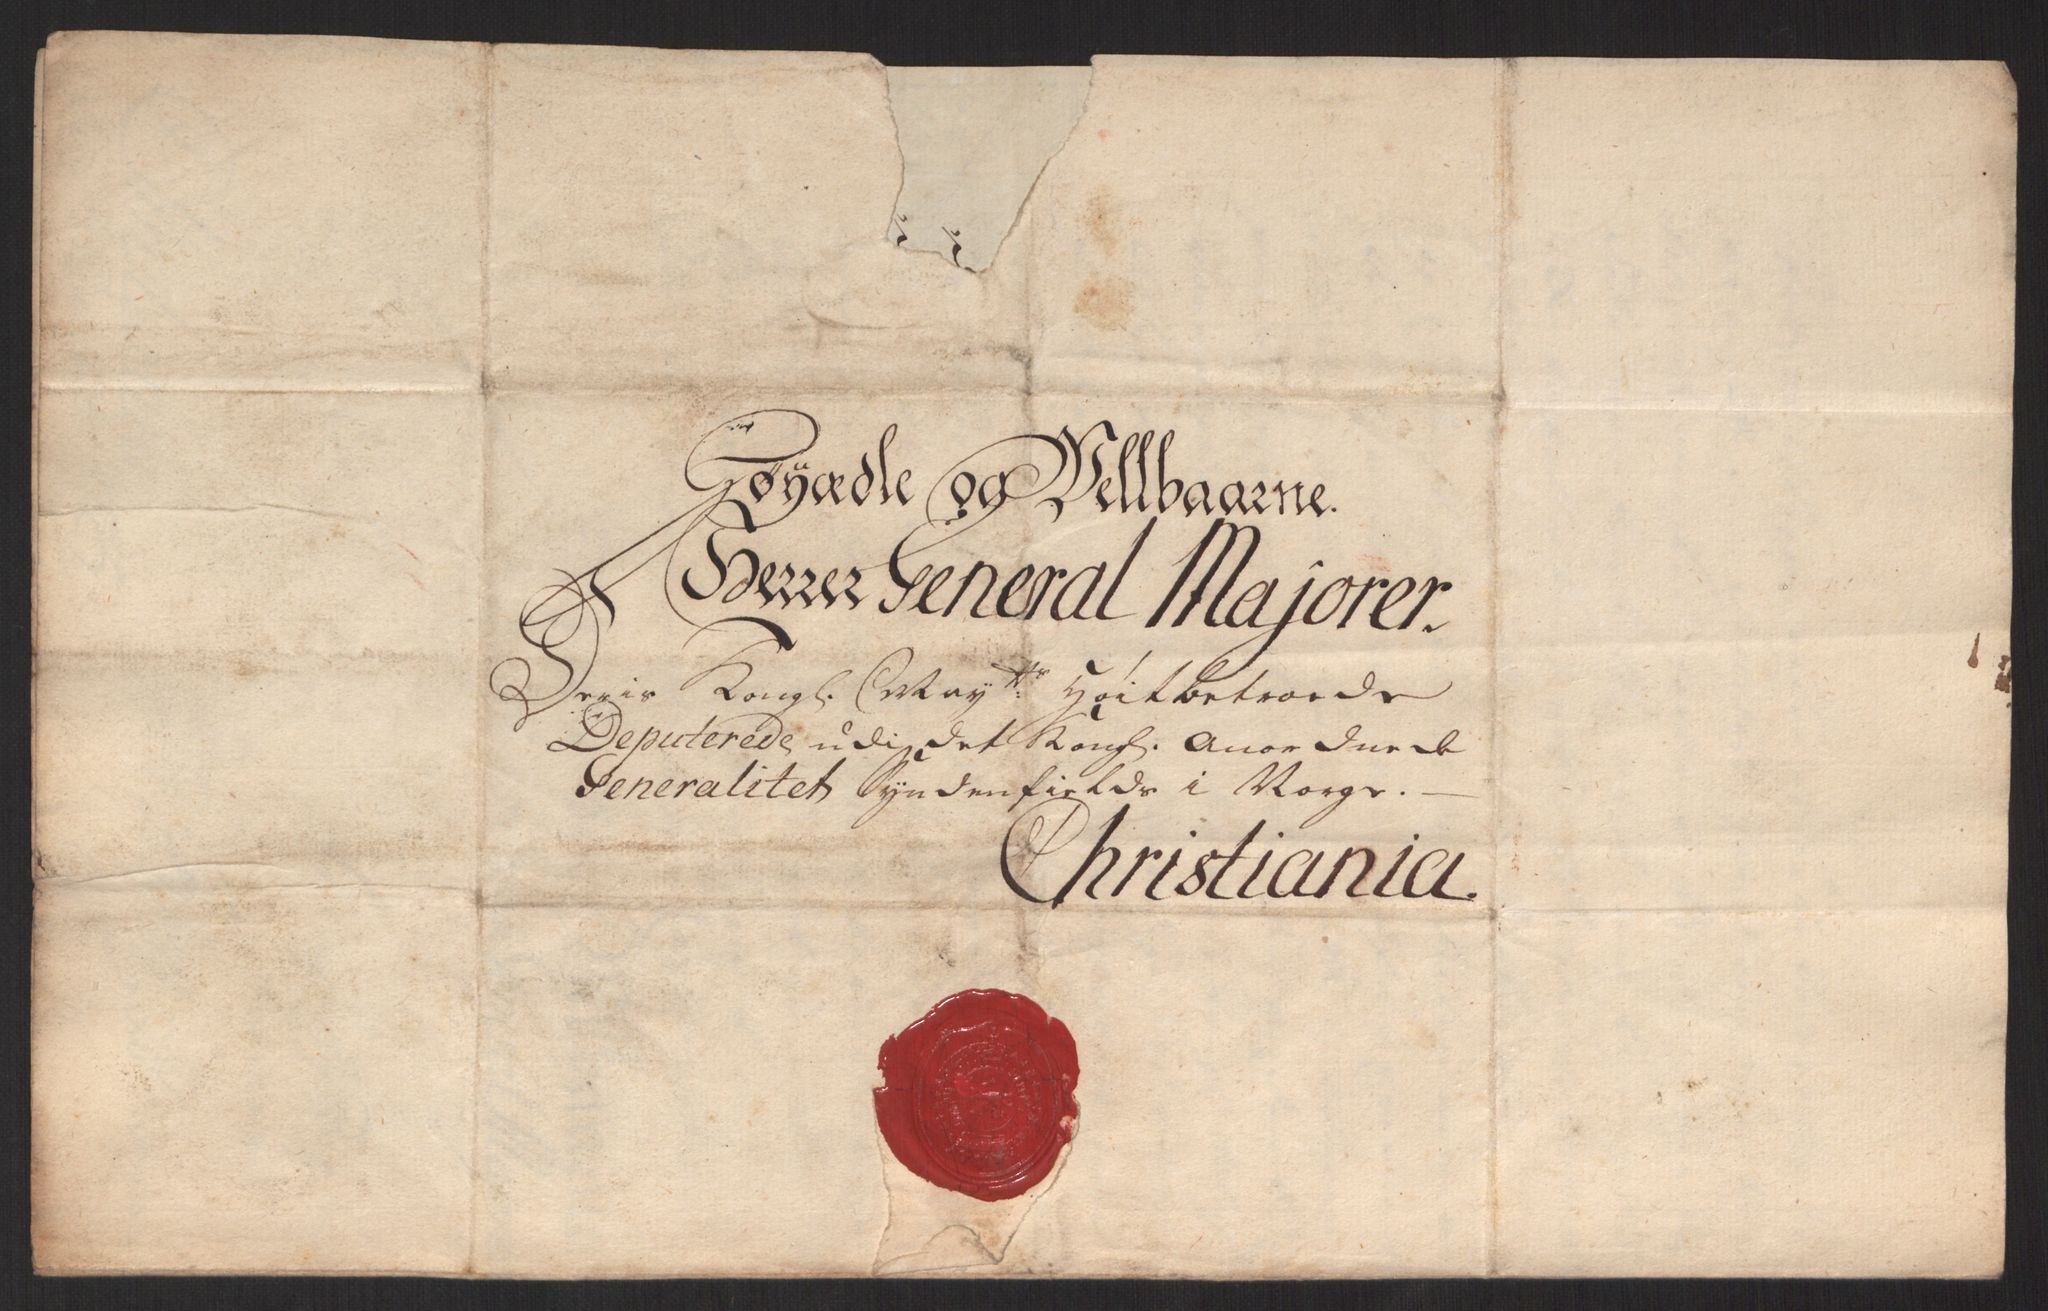 Høyædle og Vellbaarne.
Herrer General Majorer.
Deris Kongl. Mayttr Høitbetroede
Deputerede udi det Kongl. Anordnede
Generalitet Syndenfields i Norge. —
Christiania.